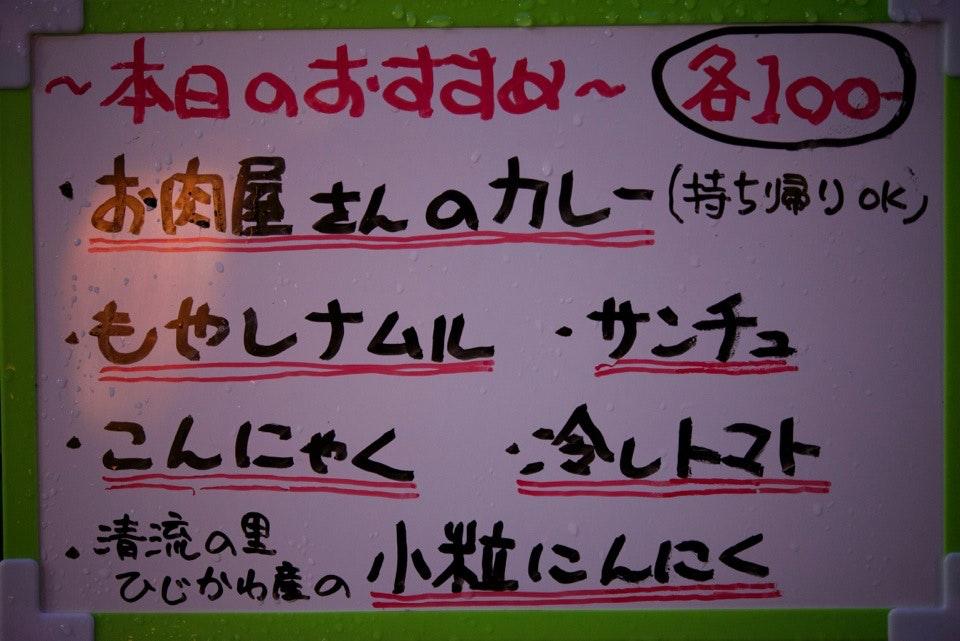 ～本日のおすすめ～ 各100-
・お肉屋さんのカレー(持ち帰りOK)
・もやしナムル ・サンチュ
・こんにゃく ・冷しトマト
・清流の里
ひじかわ産の 小粒にんにく